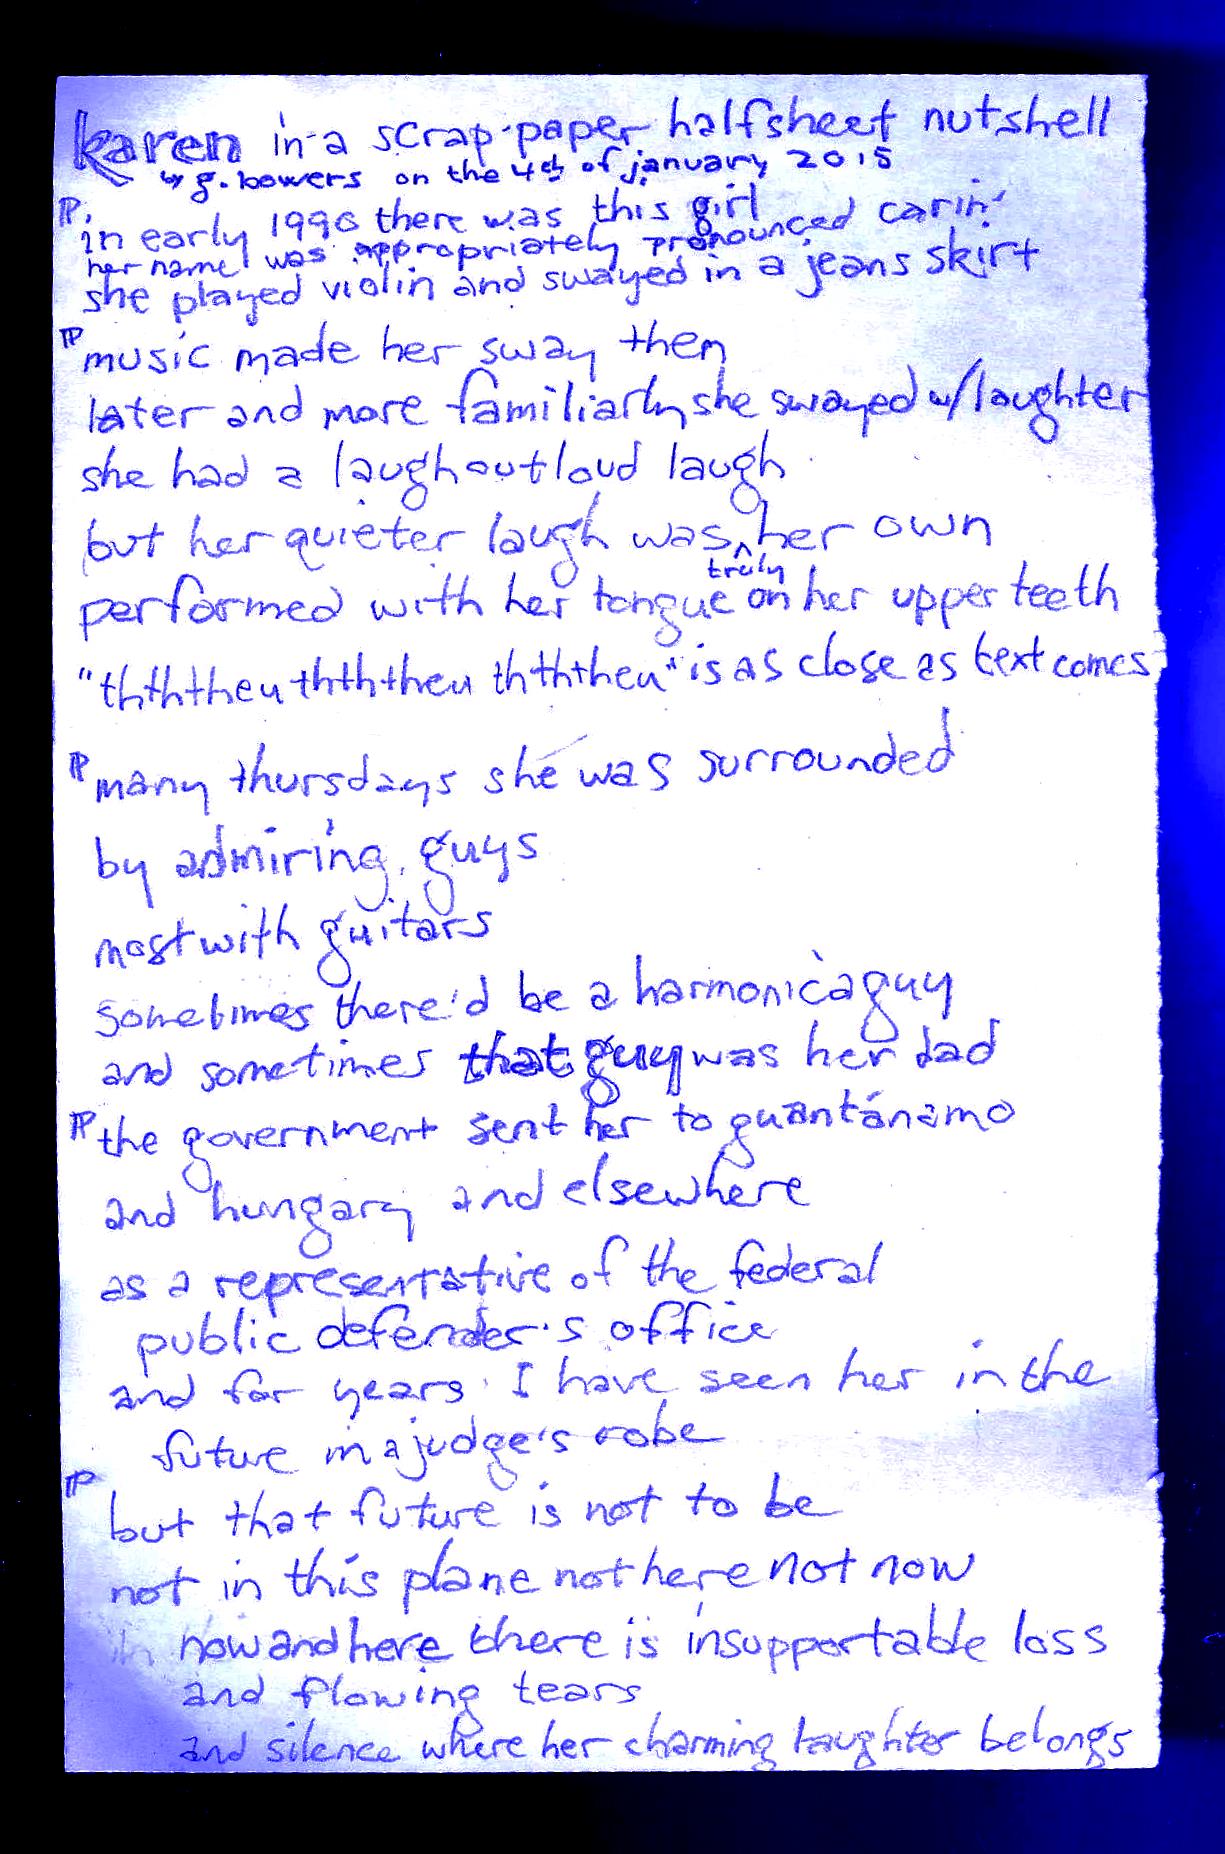 karen in a scrap-paper halfsheet nutshell
by g. bowers on the 4th of january 2015
¶ in early 1996 there was this girl
her name was appropriately pronounced carin'
she played violin and swayed in a jeans skirt
¶ music made her sway then
later and more familiarly she swayed w/laughter
she had a laughoutloud laugh
but her quieter laugh was ^truly her own
performed with her tongue on her upper teeth
"thththheu thththheu thththheu" is as close as text comes
¶ many thursdays she was surrounded
by admiring guys
most with guitars
sometimes there'd be a harmonicaguy
and sometimes that guy was her dad
¶ the government sent her to guantánamo
and hungary and elsewhere
as a representative of the federal
public defender's office
and for years I have seen her in the
future in a judge's robe
¶ but that future is not to be
not in this plane not here not now
in now and here there is insupportable loss
and flowing tears
and silence where her charming laughter belongs